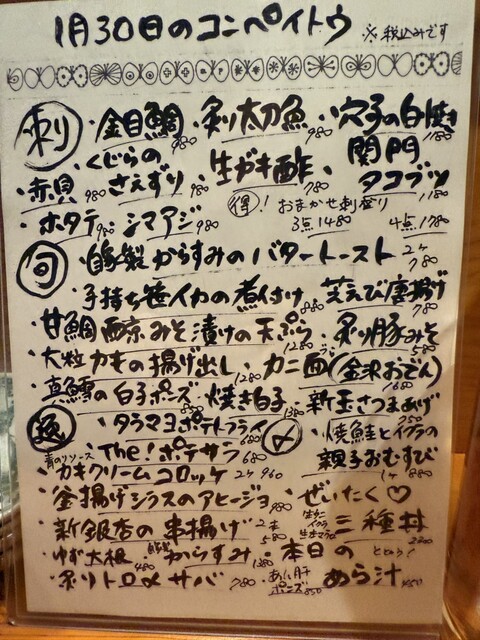 1月30日のコンペイトウ ※税込みです
刺 ・金目鯛 980 炙り太刀魚 980 ・穴子の白焼き 1180
・赤貝 980 くじらのさえずり 980 ・生ガキ酢 780 関門タコブツ 1180
・ホタテ 980 ・シマアジ 980 得!おまかせ刺盛り 3点1480 4点1780
旬 ・自家製からすみのバタートースト 2ヶ 780
・子持ち笹イカの煮付け 880 芝えび唐揚げ 780
・甘鯛西京みそ漬けの天ぷら 1280 ・炙り豚みそ 580
・大粒カキの揚げ出し 1280 ・カニ面(金沢おでん) 1680
・真鱈の白子ポンズ 850 ・焼き白子 1380 ・新玉さつまあげ 750
・タラマヨポテトフライ 680 〆 ・焼鮭とイクラの親子おむすび 1ヶ 880
・The!ポテサラ 680
青のりソース ・カキクリームコロッケ 2ヶ 960
・釜揚げシラスのアヒージョ 980 ・ぜいたく♡
・新銀杏の串揚げ 2本 580 生ウニ イクラ 三種丼 2800
・ゆず大根 480 自家製からすみ 1380 ・本日のあら汁 450
・炙りトロ〆サバ 780 ・あん肝ポンズ 850